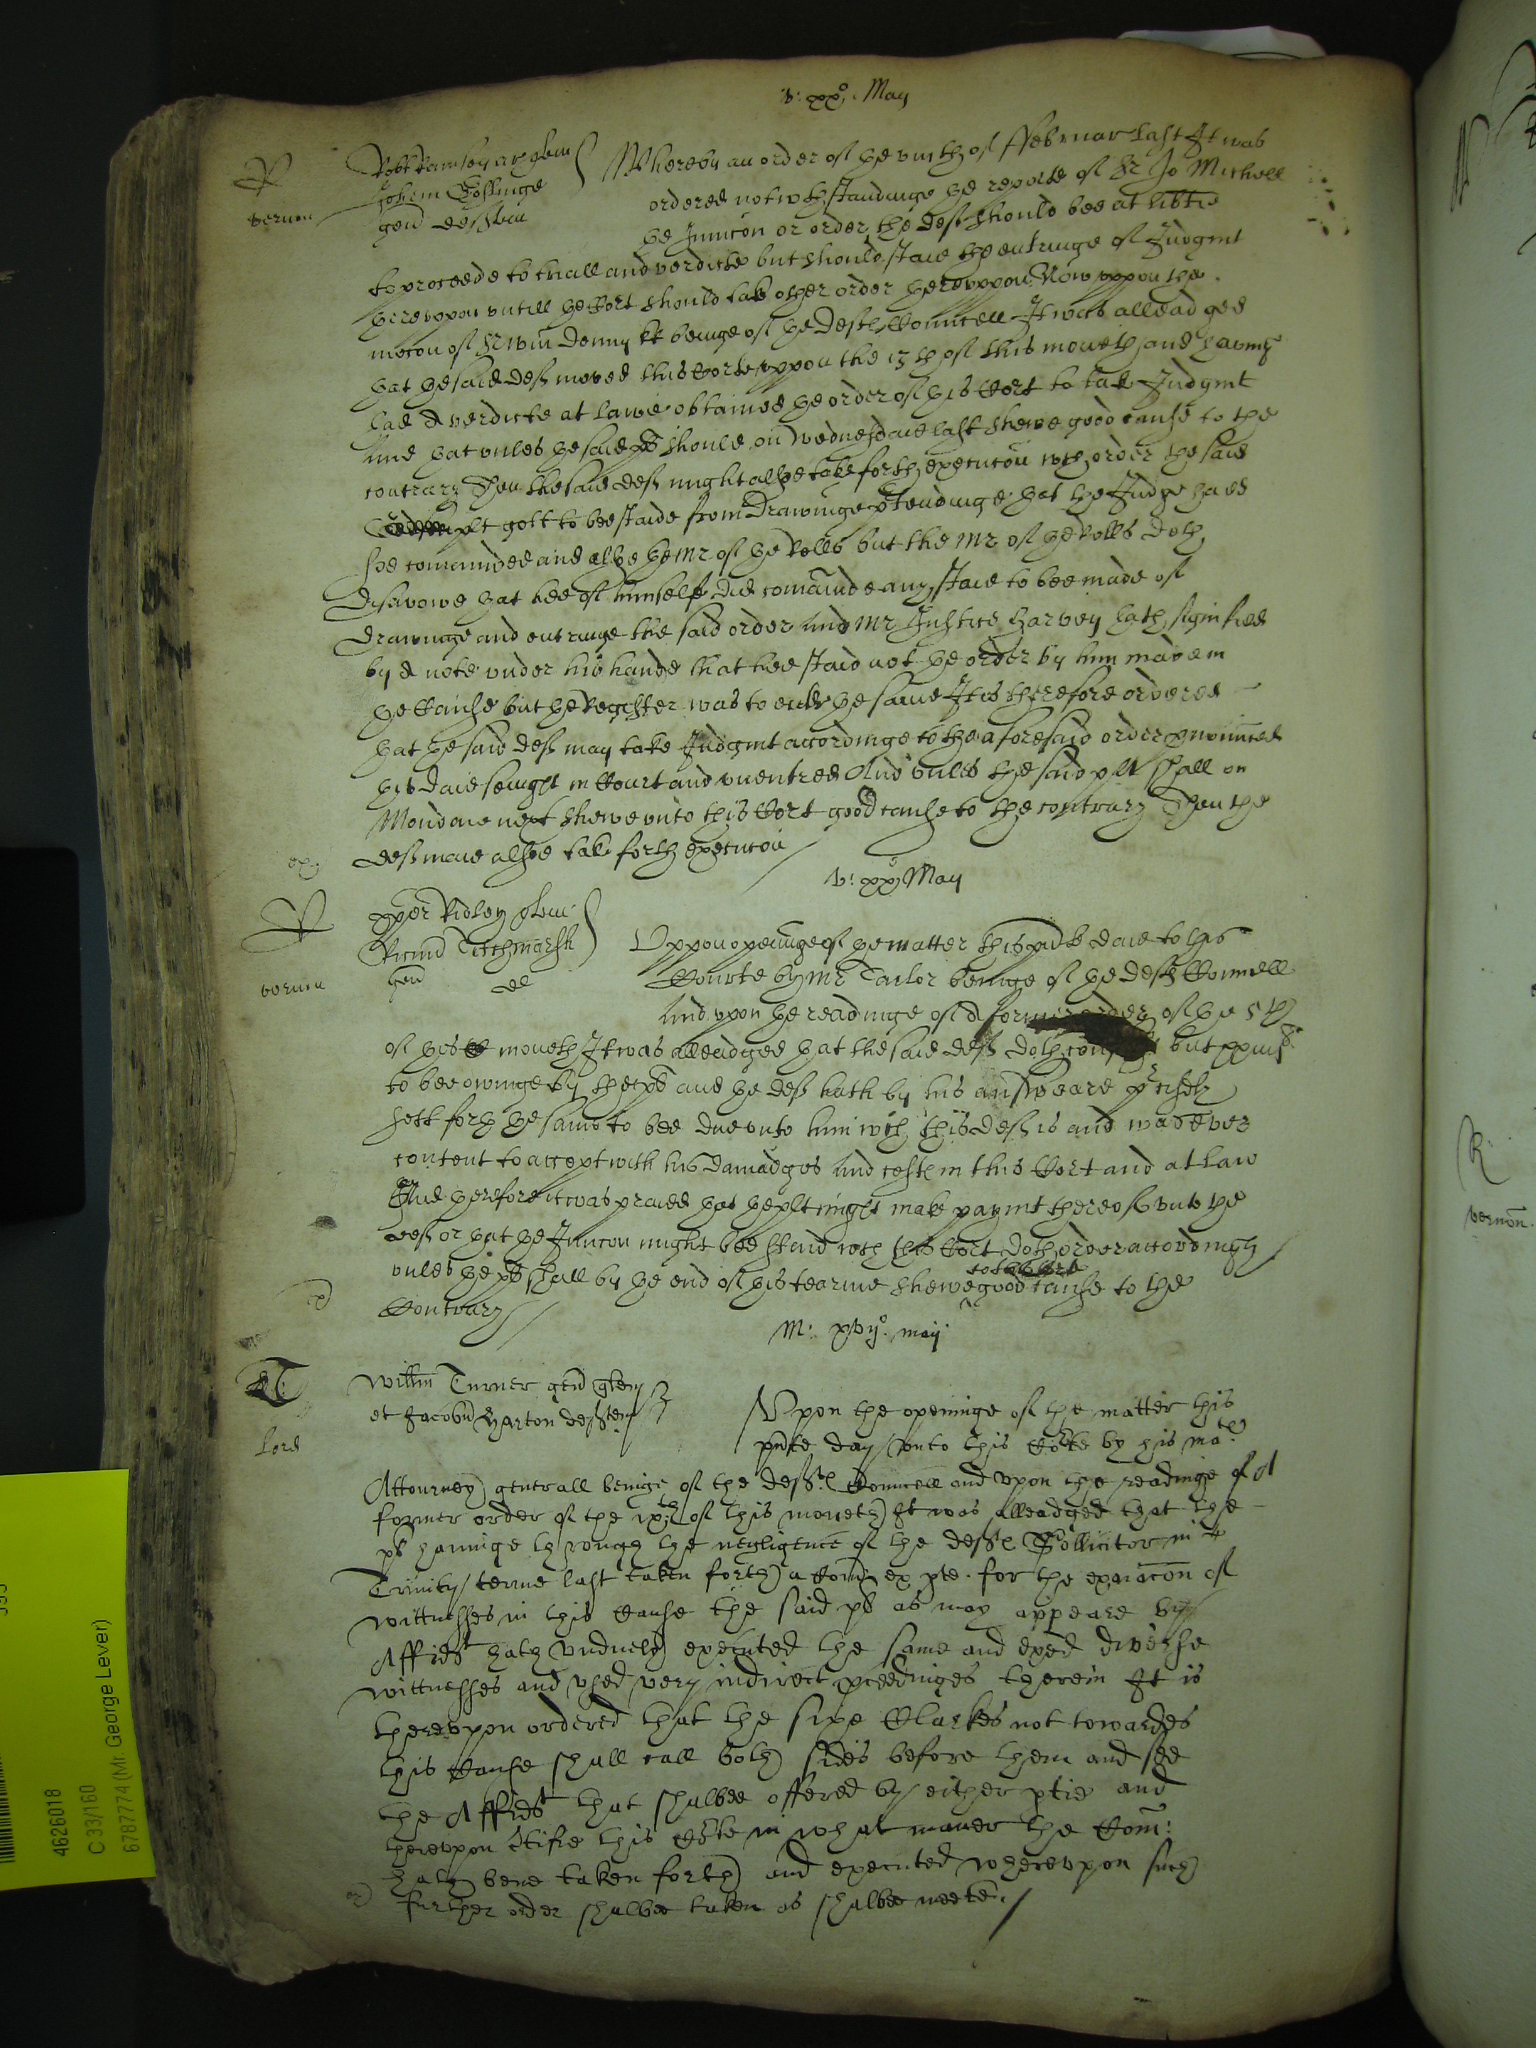 v: xxo. May
R
vernon
Robt Ramsey ar quer
Johem Goslinge
gen deften
Whereby an order of the viiith of ffebruar last It was
ordered notwthstandinge the reporte of Sr Jo Michell
the Iniuncon or order the deft should bee at libtie
to proceede to triall and verdicte but should staie the entringe of Judgmt
therevppon vntill the Cort should take other order herevppon Now vppon the
mocon of Sr Wm Denny kt beinge of the defts Councell It was alleadged
that the said deft moved this Corte vppon the 13th of this moneth and havinge
had a verdicte at lawe obtained the order of this Cort to take Judgmt
And that vnles the said plt should on Wednesdaie last shewe good cause to the
contrary Then the said deft might alsoe take forth execucon wch order the said
plt gott to bee staide from drawinge ptendinge that the Judge had
soe comaunded and alsoe the Mr of the Rolls but the Mr of the Rolls doth
disavowe that hee of himself did comaunde any staie to bee made of
drawinge and entringe the said order And Mr Justice Harvey hath signified
by a note vnder his hande that hee staid not the order by him made in
the Cause but the Register was to enter the same It is therefore ordered
that the said deft may take Judgmt accordinge to the aforesaid order
this daie sought in Court and vnentred And vnles the said plt shall on
Mondaie next shewe vnto this Cort good cause to the contrary Then the
deft maie alsoe take forth execucon
ex
v: xxo May
R
vernon
xpofer Ridley quer
Ricum Titchmarsh
gen de
Vppon openinge of the matter this pnte daie to this
Courte by Mr Tailor beinge of the defts Councell
And vpon the readinge of a former order of the 5th
of this moneth It was alleadged that the said deft doth but
to bee owinge by the plt and the deft hath by his answeare
sett forth the same to bee due vnto him wch this deft is and was ever
content to accept with his damadges And costs in this Cort and at law
And therefore it was praied that the plt might make paymt thereof vnto the
deft or that the Iniuncon might bee staid wch this Cort doth order accordingly
vnles the plt shall by the end of this tearme shewe to this Corte good cause to the
Contrary
M: xvijo. may
Lord
Willm Turner gen quer
et Jacobu Harton deften
Vpon the openinge of the matter this
pnte day vnto this Corte by his mats
Attourney generall beinge of the defts Councell and vpon the readinge of a
former order of the ixth of this moneth It was alleadged that the
plt havinge through the negligence of the defts Sollicitor in
Trinity terme last taken forth a Com ex pte. for the exaiacon of
wittnesses in this Cause the said plt as may appeare by
Affidt hath vnduely executed the same and exed diverse
wittnesses and vsed very indirect pceedinges therein It is
therevpon ordered that the sixe Clarkes not towardes
this Cause shall call both sides before them and see
the Affidts that shalbee offered by either ptie and
therevpon ctifie this Corte in what maner the Com:
hath bene taken forth and executed wherevpon such
further order shalbee taken as shalbee meete.
4626018
C 33/160
6787774 (Mr. George Lever)
R
vernon.